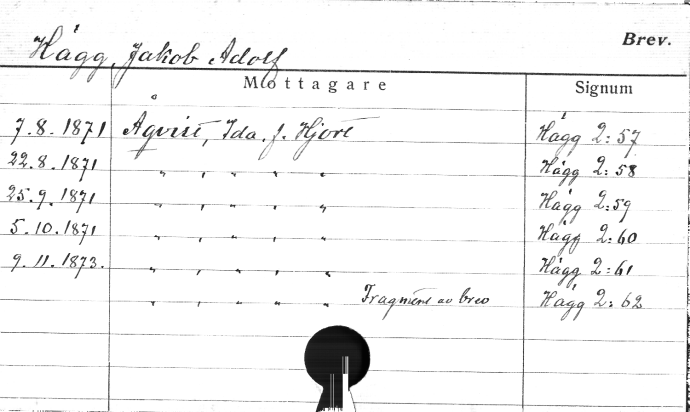 Brev.
Hägg, Jakob Adolf
Mottagare Signum
7.8.1871 Åqvist, Ida, f. Hjort Hägg 2:57
22.8.1871 " , " " " Hägg 2:58
25.9.1871 " , " " " Hägg 2:59
5.10.1871 " , " " " Hägg 2:60
9.11.1873. " , " " " Hägg 2:61
" , " " " Fragment av brev Hägg 2:62